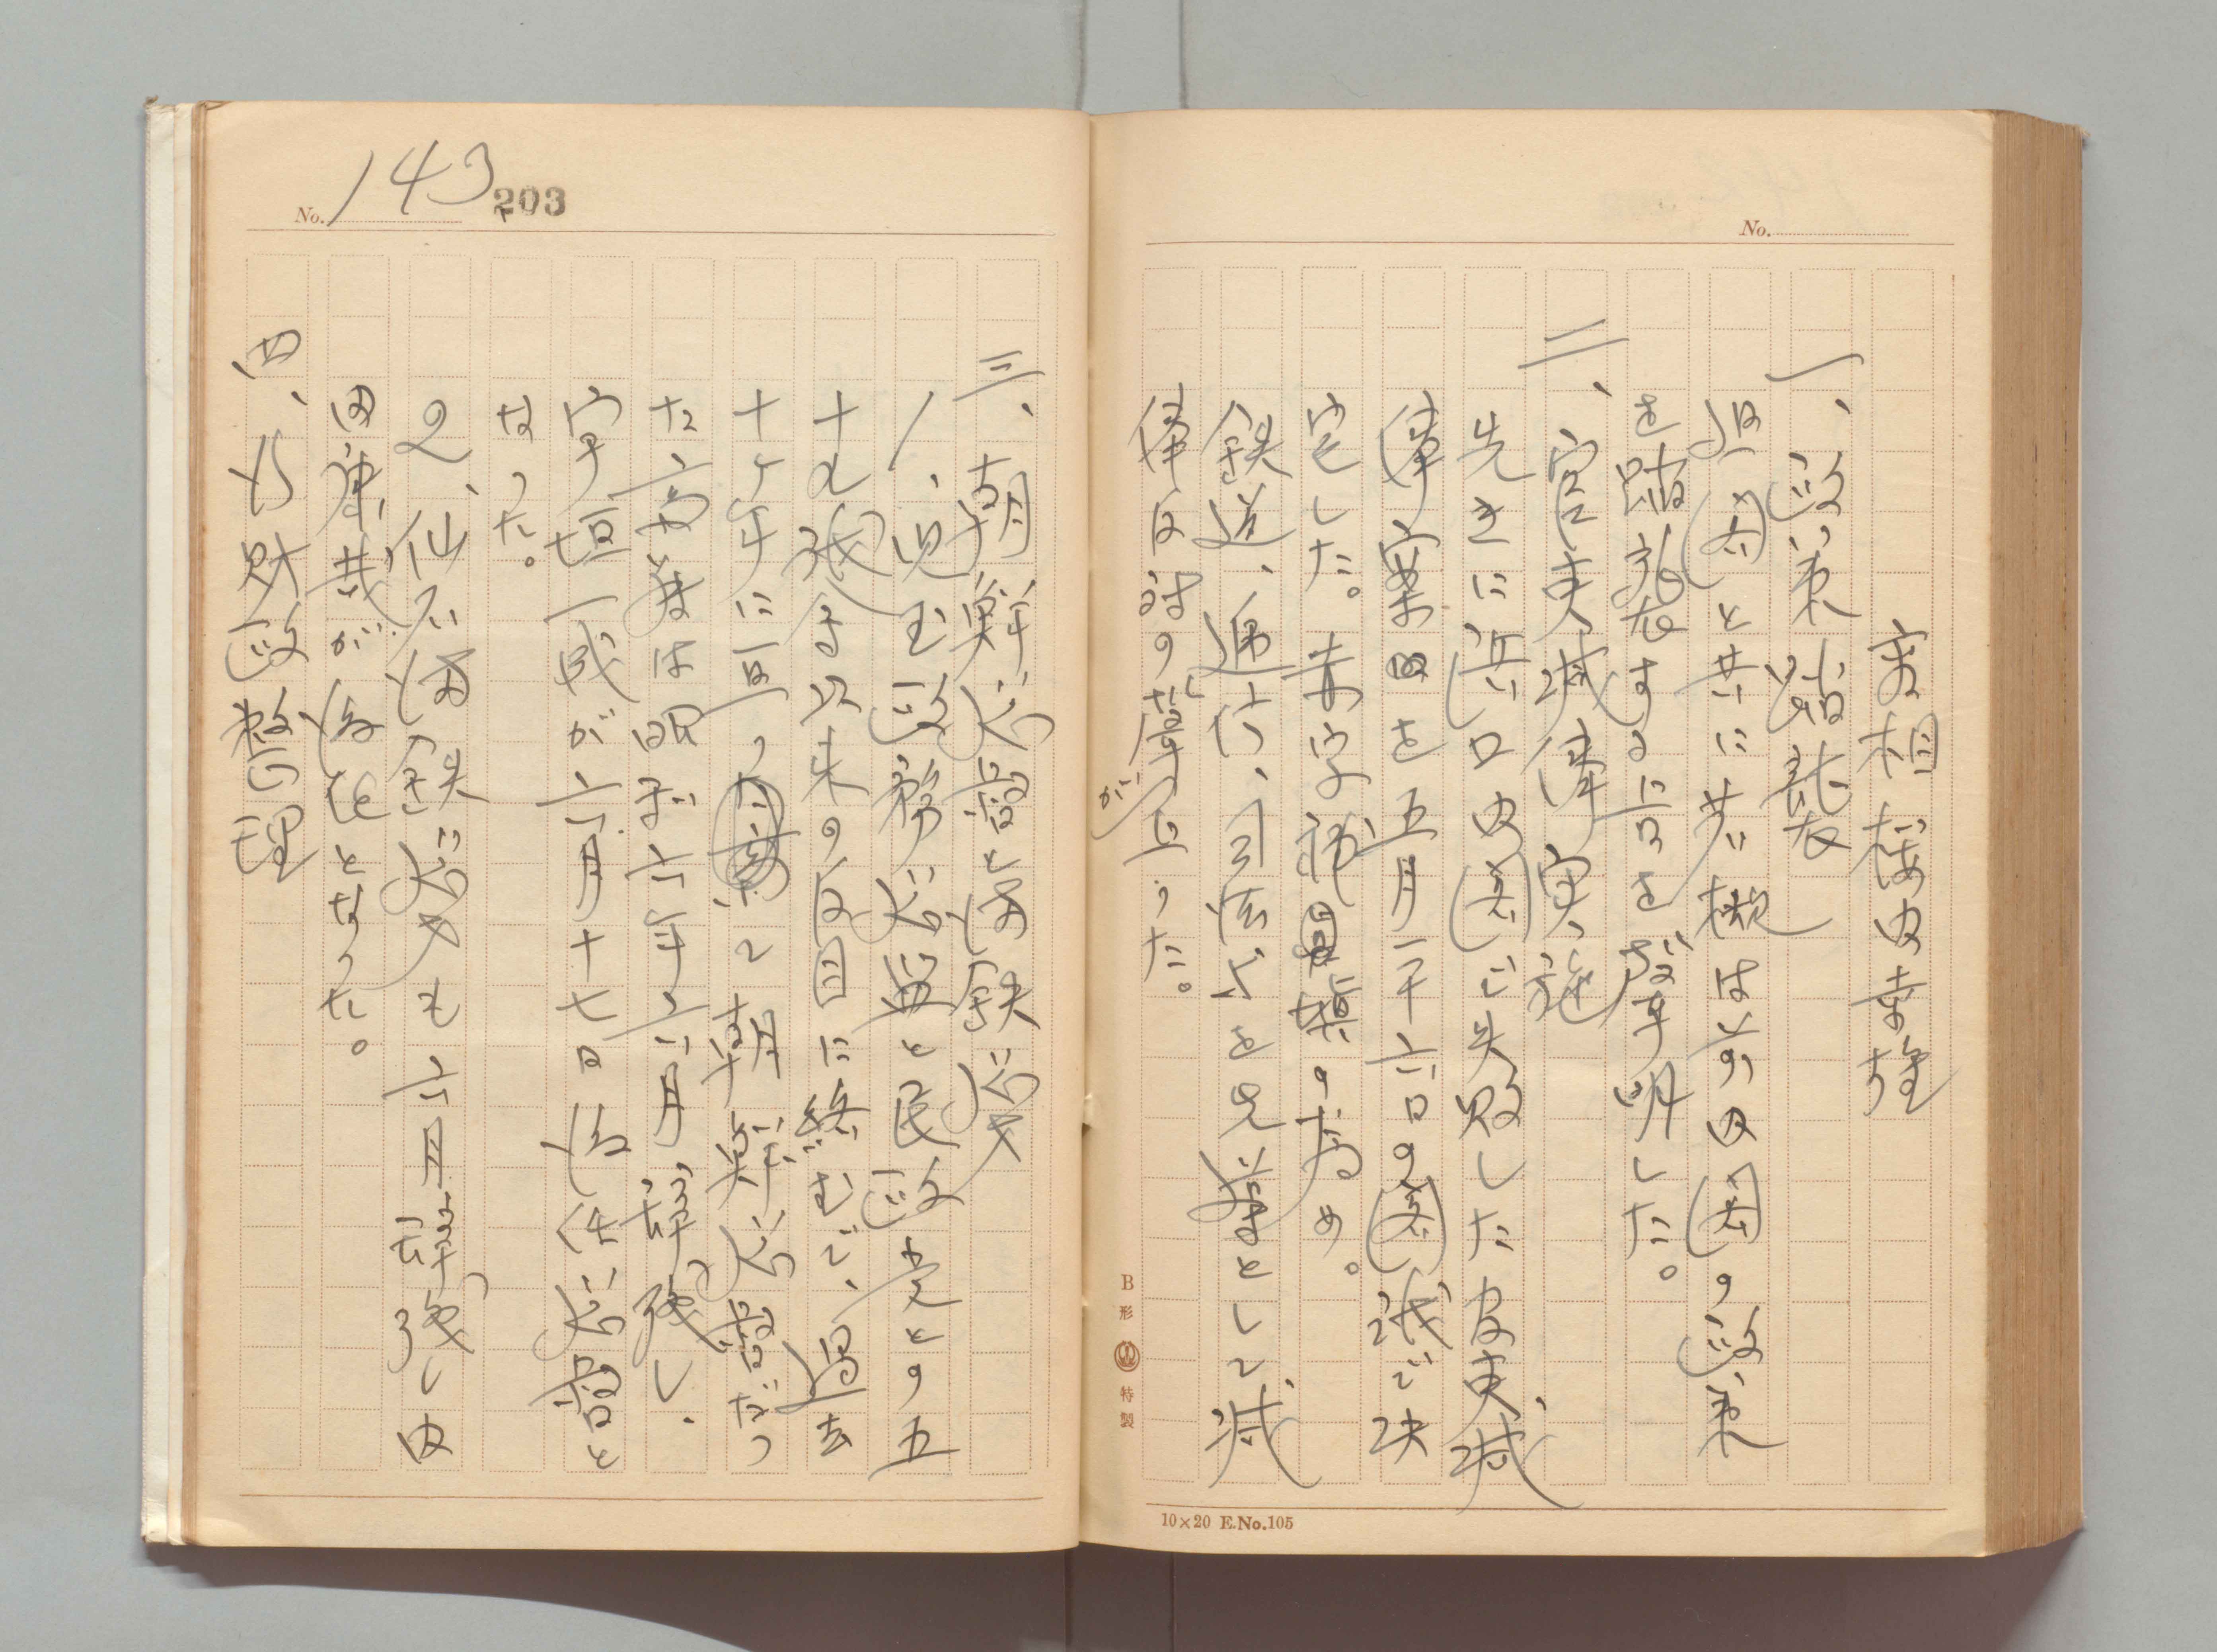 商相 桜内幸雄
一、政策踏襲
組閣と共に若槻は前内閣の政策
を踏襲する旨を声明した。
二、官吏減俸実施
先きに浜口内閣で失敗した官吏減
俸案を五月二十六日の閣議で決
定した。赤字補填の為め。
鉄道、逓信、司法官を先導として減
俸反対の声が上った。
B形 特製
10×20 E.No.105
No.
No. 143
203
三、朝鮮総督と満鉄総裁
1、児玉政務総監と民政党との五
十九議会以来の反目に絡むで、過去
十ヶ年に亘って朝鮮総督だっ
た斎藤は昭和六年六月辞職し、
宇垣一成が六月十七日後任総督と
なった。
2、仙石満鉄総裁も六月辞職し内
田康哉が後任となった。
四、行財政整理